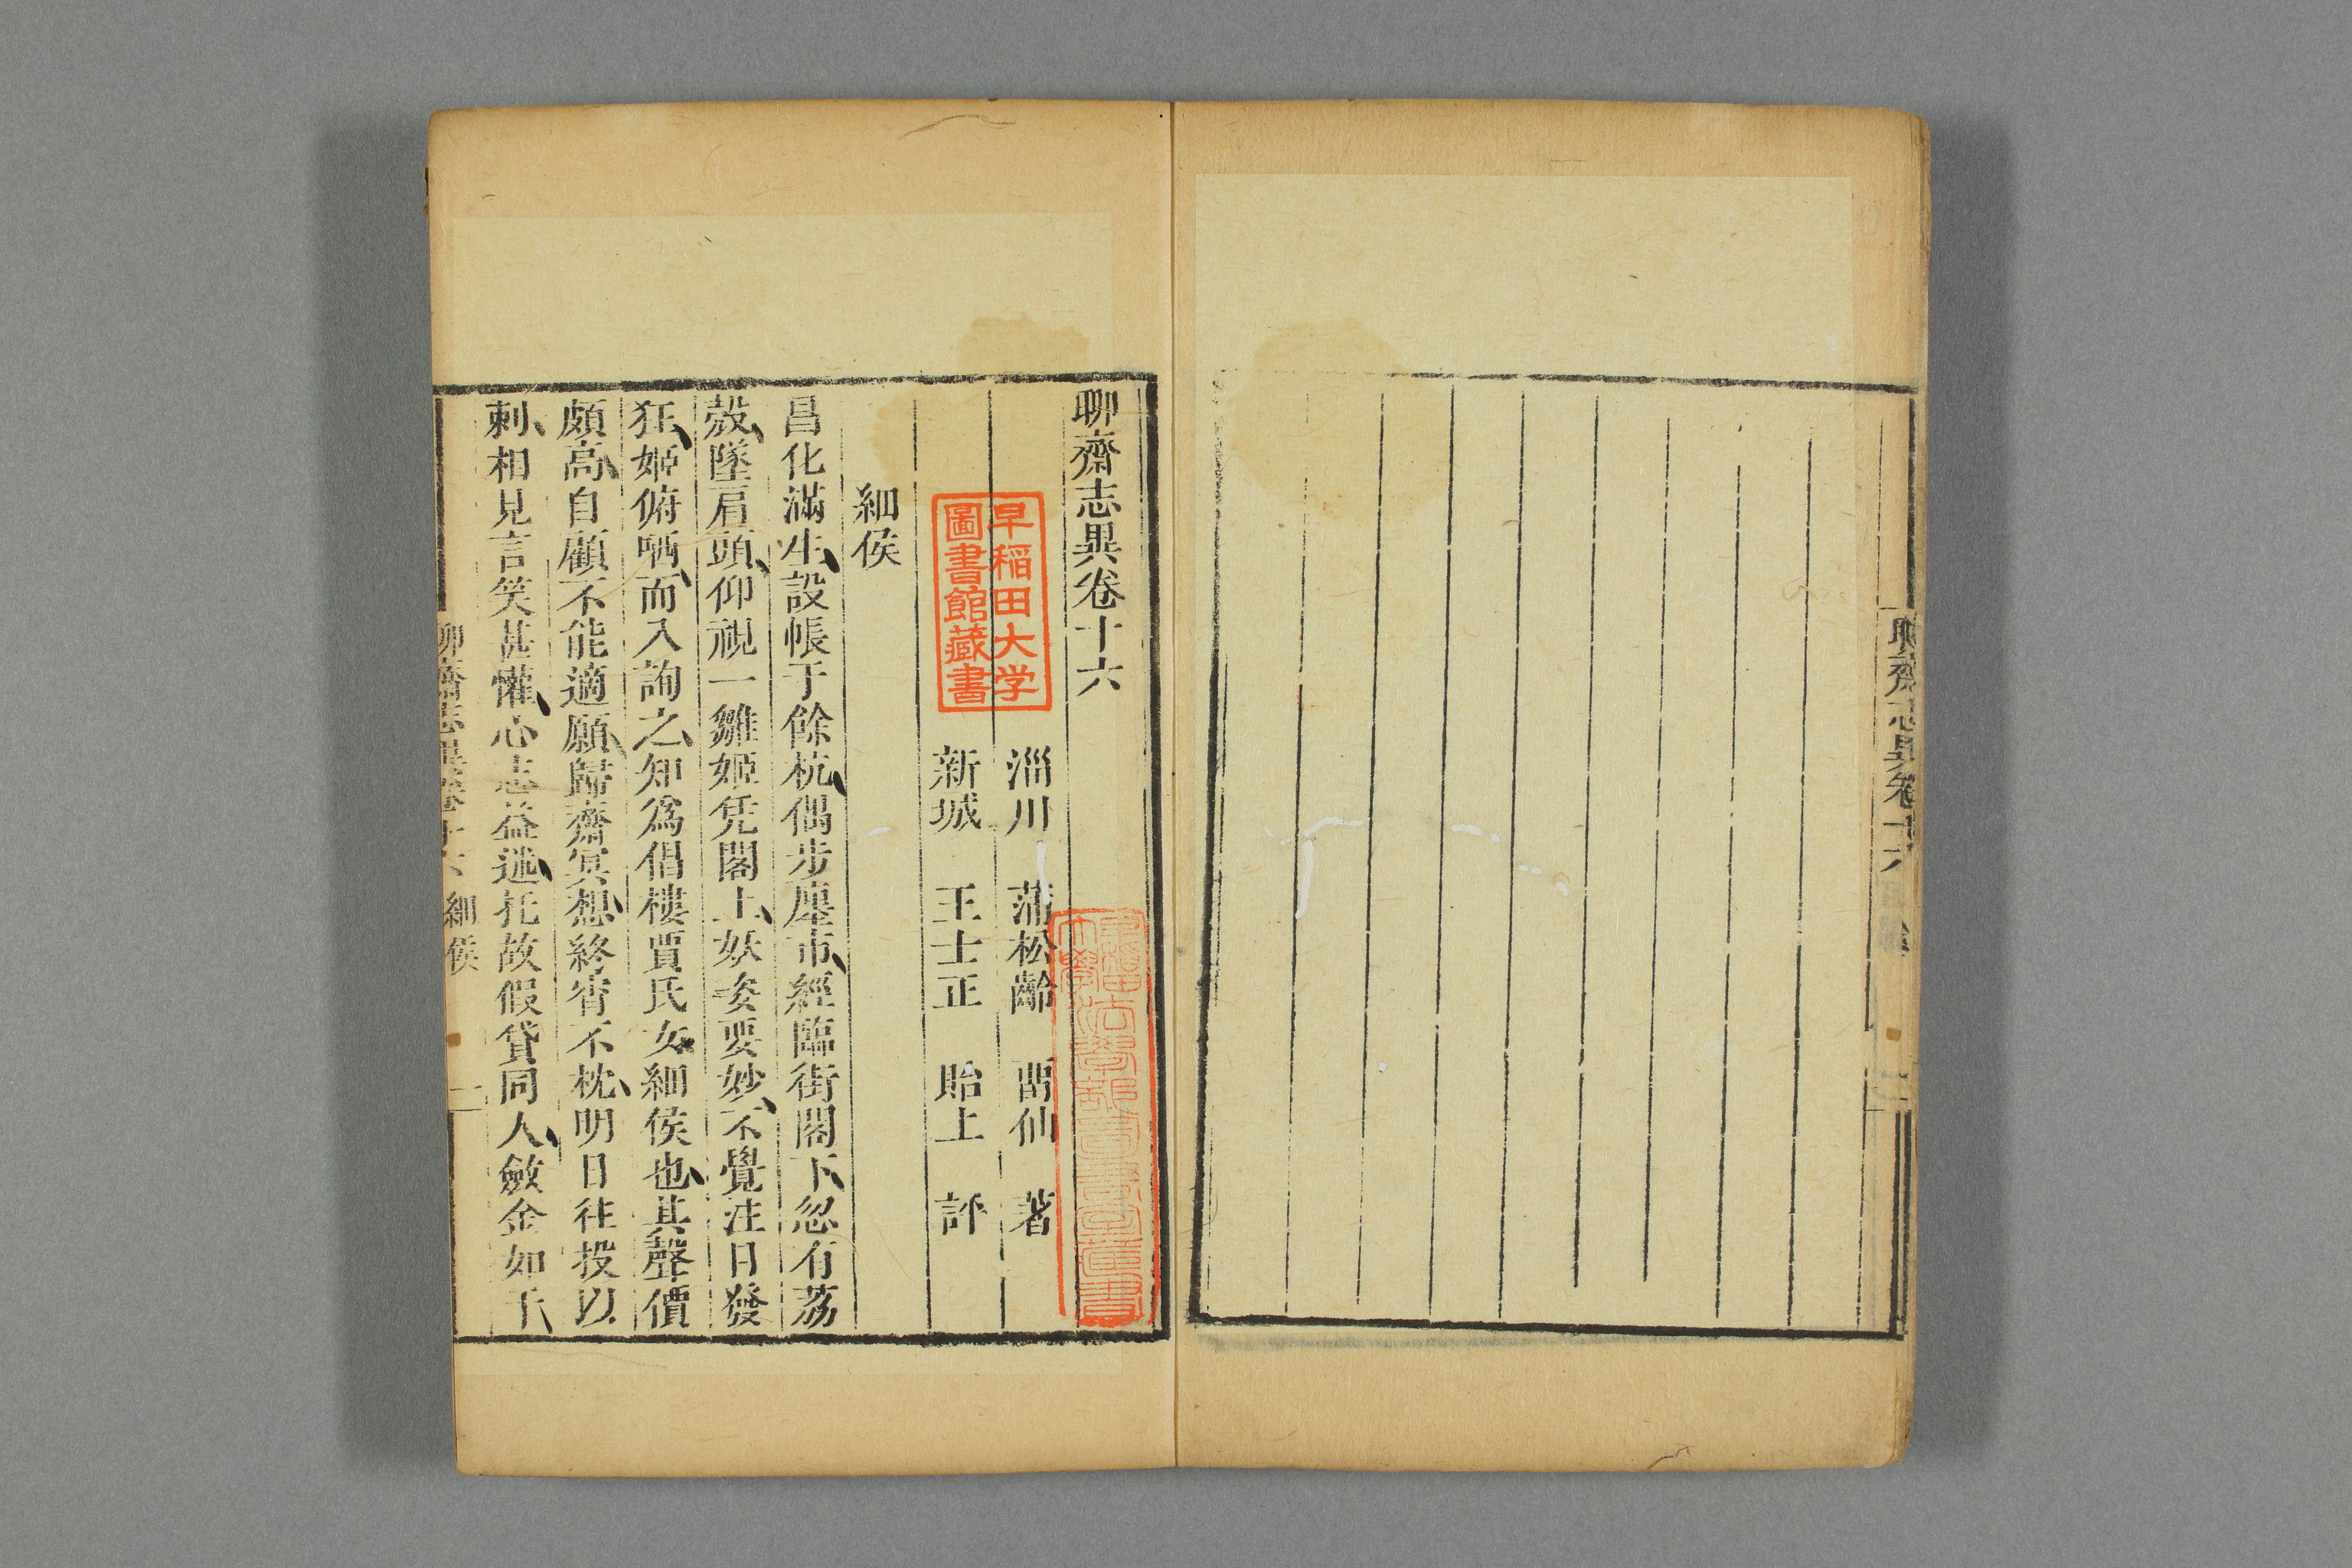 聊齋志異卷十六
聊齋志異卷十六
淄川 蒲松齡 畱仙 著
新城 王士正 貽上 評
早稲田大学
圖書館藏書
細侯
昌化滿生、設帳于餘杭、偶步廛市、經臨街閣下、忽有荔
殼、墜肩頭、仰視一雛姬凭閣上、妖姿要妙、不覺注目發
狂、姬俯哂、而入詢之、知爲倡樓賈氏女細侯也、其聲價
頗高、自顧不能適願、歸齋冥想、終宵不枕、明日往投以
刺、相見言笑甚懽、心志益迷、托故假貸同人、斂金如干、
聊齋志異卷十六 細侯 一